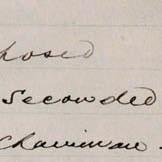 posed
Seconded
Chairman